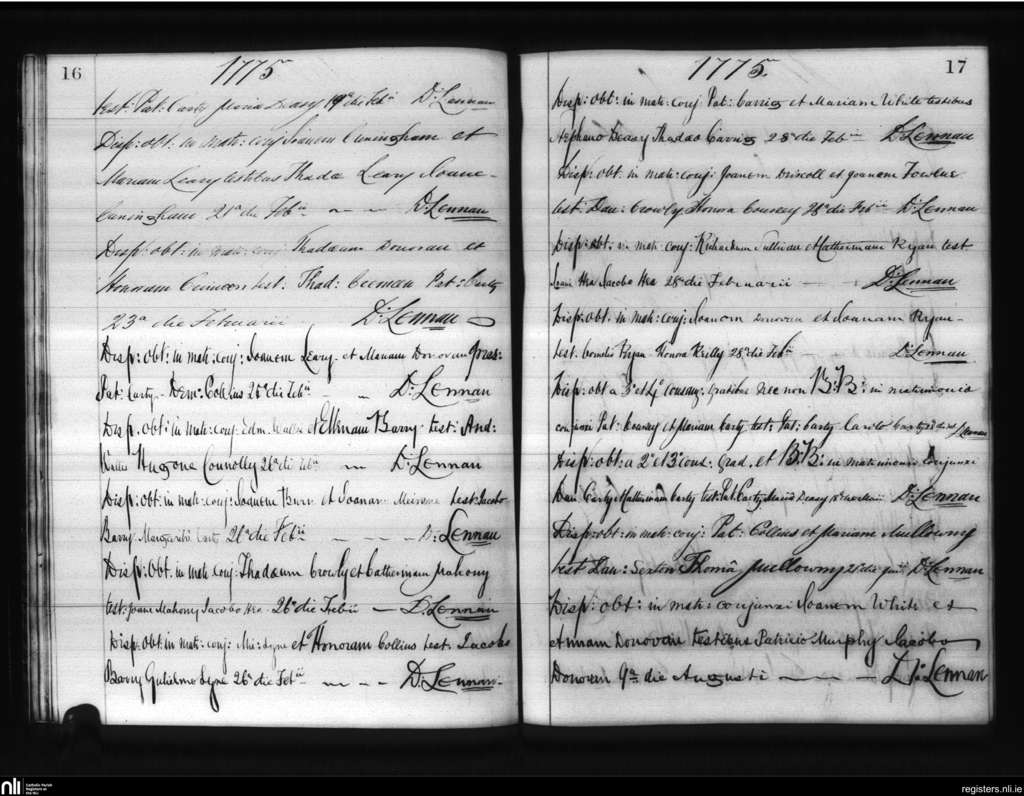 16
1775
test: Pat: Carty Maria Deasy 19ª die Feb:ii D: Lennan
Disp: obt: in mat: conj: Joanem Cuningham et
Mariam Leary testibus Thadæ Leary Joane
Cuningham 21ª die Feb:ii D: Lennan
Disp: obt: in mat: conj: Thadæum Donovan et
Honoram test: Thad: Pat: Carty
23ª die Februarii D: Lennan
Disp: obt: in mat: conj: Joanem Leary et Mariam Donovan præs:
Pat: Carty Collins 25ª die Feb:ii D: Lennan
Disp: obt: in mat: conj: Edm: et Ellenam Barry test: And:
Hugone Connolly 26ª die Feb:ii D: Lennan
Disp: obt: in mat: conj: Joanem Burn et Joanam test: Jacobo
Barry Margarita Carty 26ª die Feb:ii D: Lennan
Disp: obt: in mat: conj: Thadæum Crowly et Catherinam Mahony
test: Joane Mahony Jacobo Hea 26ª die Febii D: Lennan
Disp: obt: in mat: conj: Mic: Lyne et Honoram Collins test: Jacobo
Barry Gulielmo Lyne 26ª die Feb:ii D: Lennan
17
1775.
Disp: obt: in mat: conj: Pat: Carrig et Mariam White testibus
Stephano Deasy Thadæo Carrig 28ª die Feb:ii D: Lennan
Disp: obt: in mat: conj: Joanem Driscoll et Joanam Fowlue
test: Dan: Crowly Honora Coursey 28ª die Feb:ii D: Lennan
Disp: obt: in mat: conj: Richardum Sullivan et Catherinam Ryan test
Joane Hea Jacobo Hea 28ª die Februarii D: Lennan
Disp: obt: in mat: conj: Joanem Donovan et Joanam Ryan
test: Cornelio Ryan Honora Reilly 28ª die Feb:ii D: Lennan
Disp: obt a 3º et 4º consang: gradibus nec non B:B: in matrimonio
conjunxi Pat: Coursey et Mariam Carty test: Pat: Carty Carolo Carty Lennan
Disp: obt: a 2º et 3º cons: Grad: et B:B: in matrimonio conjunxi
Dan: Carty et Catherinam Carty test: Pat: Carty Maria Deasy D: Lennan
Disp: obt: in mat: conj: Pat: Collins et Mariam Mullowny
test: Dan: Sexton Thomâ Mullowny 25 die D: Lennan
Disp: obt: in mat: conjunxi Joanem White et
et Donovan testibus Patricio Murphy Jacobo
Donovan 9ª die Augusti D: Lennan
nli
Catholic Parish
Registers at
the NLI
registers.nli.ie